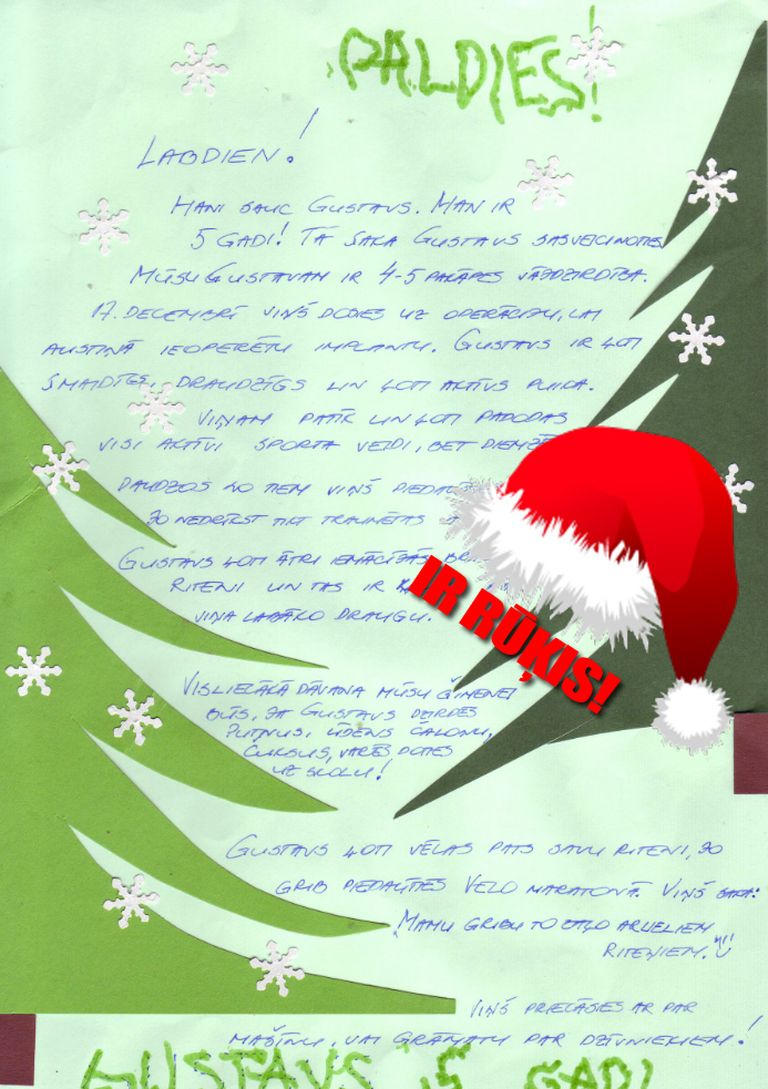 PALDIES!
LABDIEN!
MANI SAUC GUSTAVS. MAN IR
5 GADI! TĀ SAKA GUSTAVS SASVEICINOTIES.
MŪSU GUSTAVAM IR 4-5 PAKĀPES VĀJDZIRDĪBA.
17. DECEMBRĪ VIŅŠ DOSIES UZ OPERĀCIJU, LAI
AUSTIŅĀ IEOPERĒTU IMPLANTU. GUSTAVS IR ĻOTI
SMAIDĪGS, DRAUDZĪGS UN ĻOTI AKTĪVS PUIKA.
VIŅAM PATĪK UN ĻOTI PADODAS
VISI AKTĪVI SPORTA VEIDI, BET
DAUDZOS NO TIEM VIŅŠ
JO NEDRĪKST TIKT TRAUMĒTAS
GUSTAVS ĻOTI ĀTRI IEMĀCĪJĀS
RITENI UN TAS IR
VIŅA LABĀKO DRAUGU.
IR RŪĶIS!
VISLIELĀKĀ DĀVANA MŪSU ĢIMENEI
BŪS, JA GUSTAVS DZIRDĒS
PUTNUS, ŪDENS ČALOŅU,
ČUKSUS, VARĒS DOTIES
UZ SKOLU!
GUSTAVS ĻOTI VĒLAS PATS SAVU RITENI, JO
GRIB PIEDALĪTIES VELO MARATONĀ. VIŅŠ SAKA:
"MAMU GRIBU TO ZAĻO AR LIELIEM
RITEŅIEM."
VIŅŠ PRIECĀSIES AR PAR
MAŠĪNU, VAI GRĀMATU PAR DZĪVNIEKIEM!
GUSTAVS 5 GADI